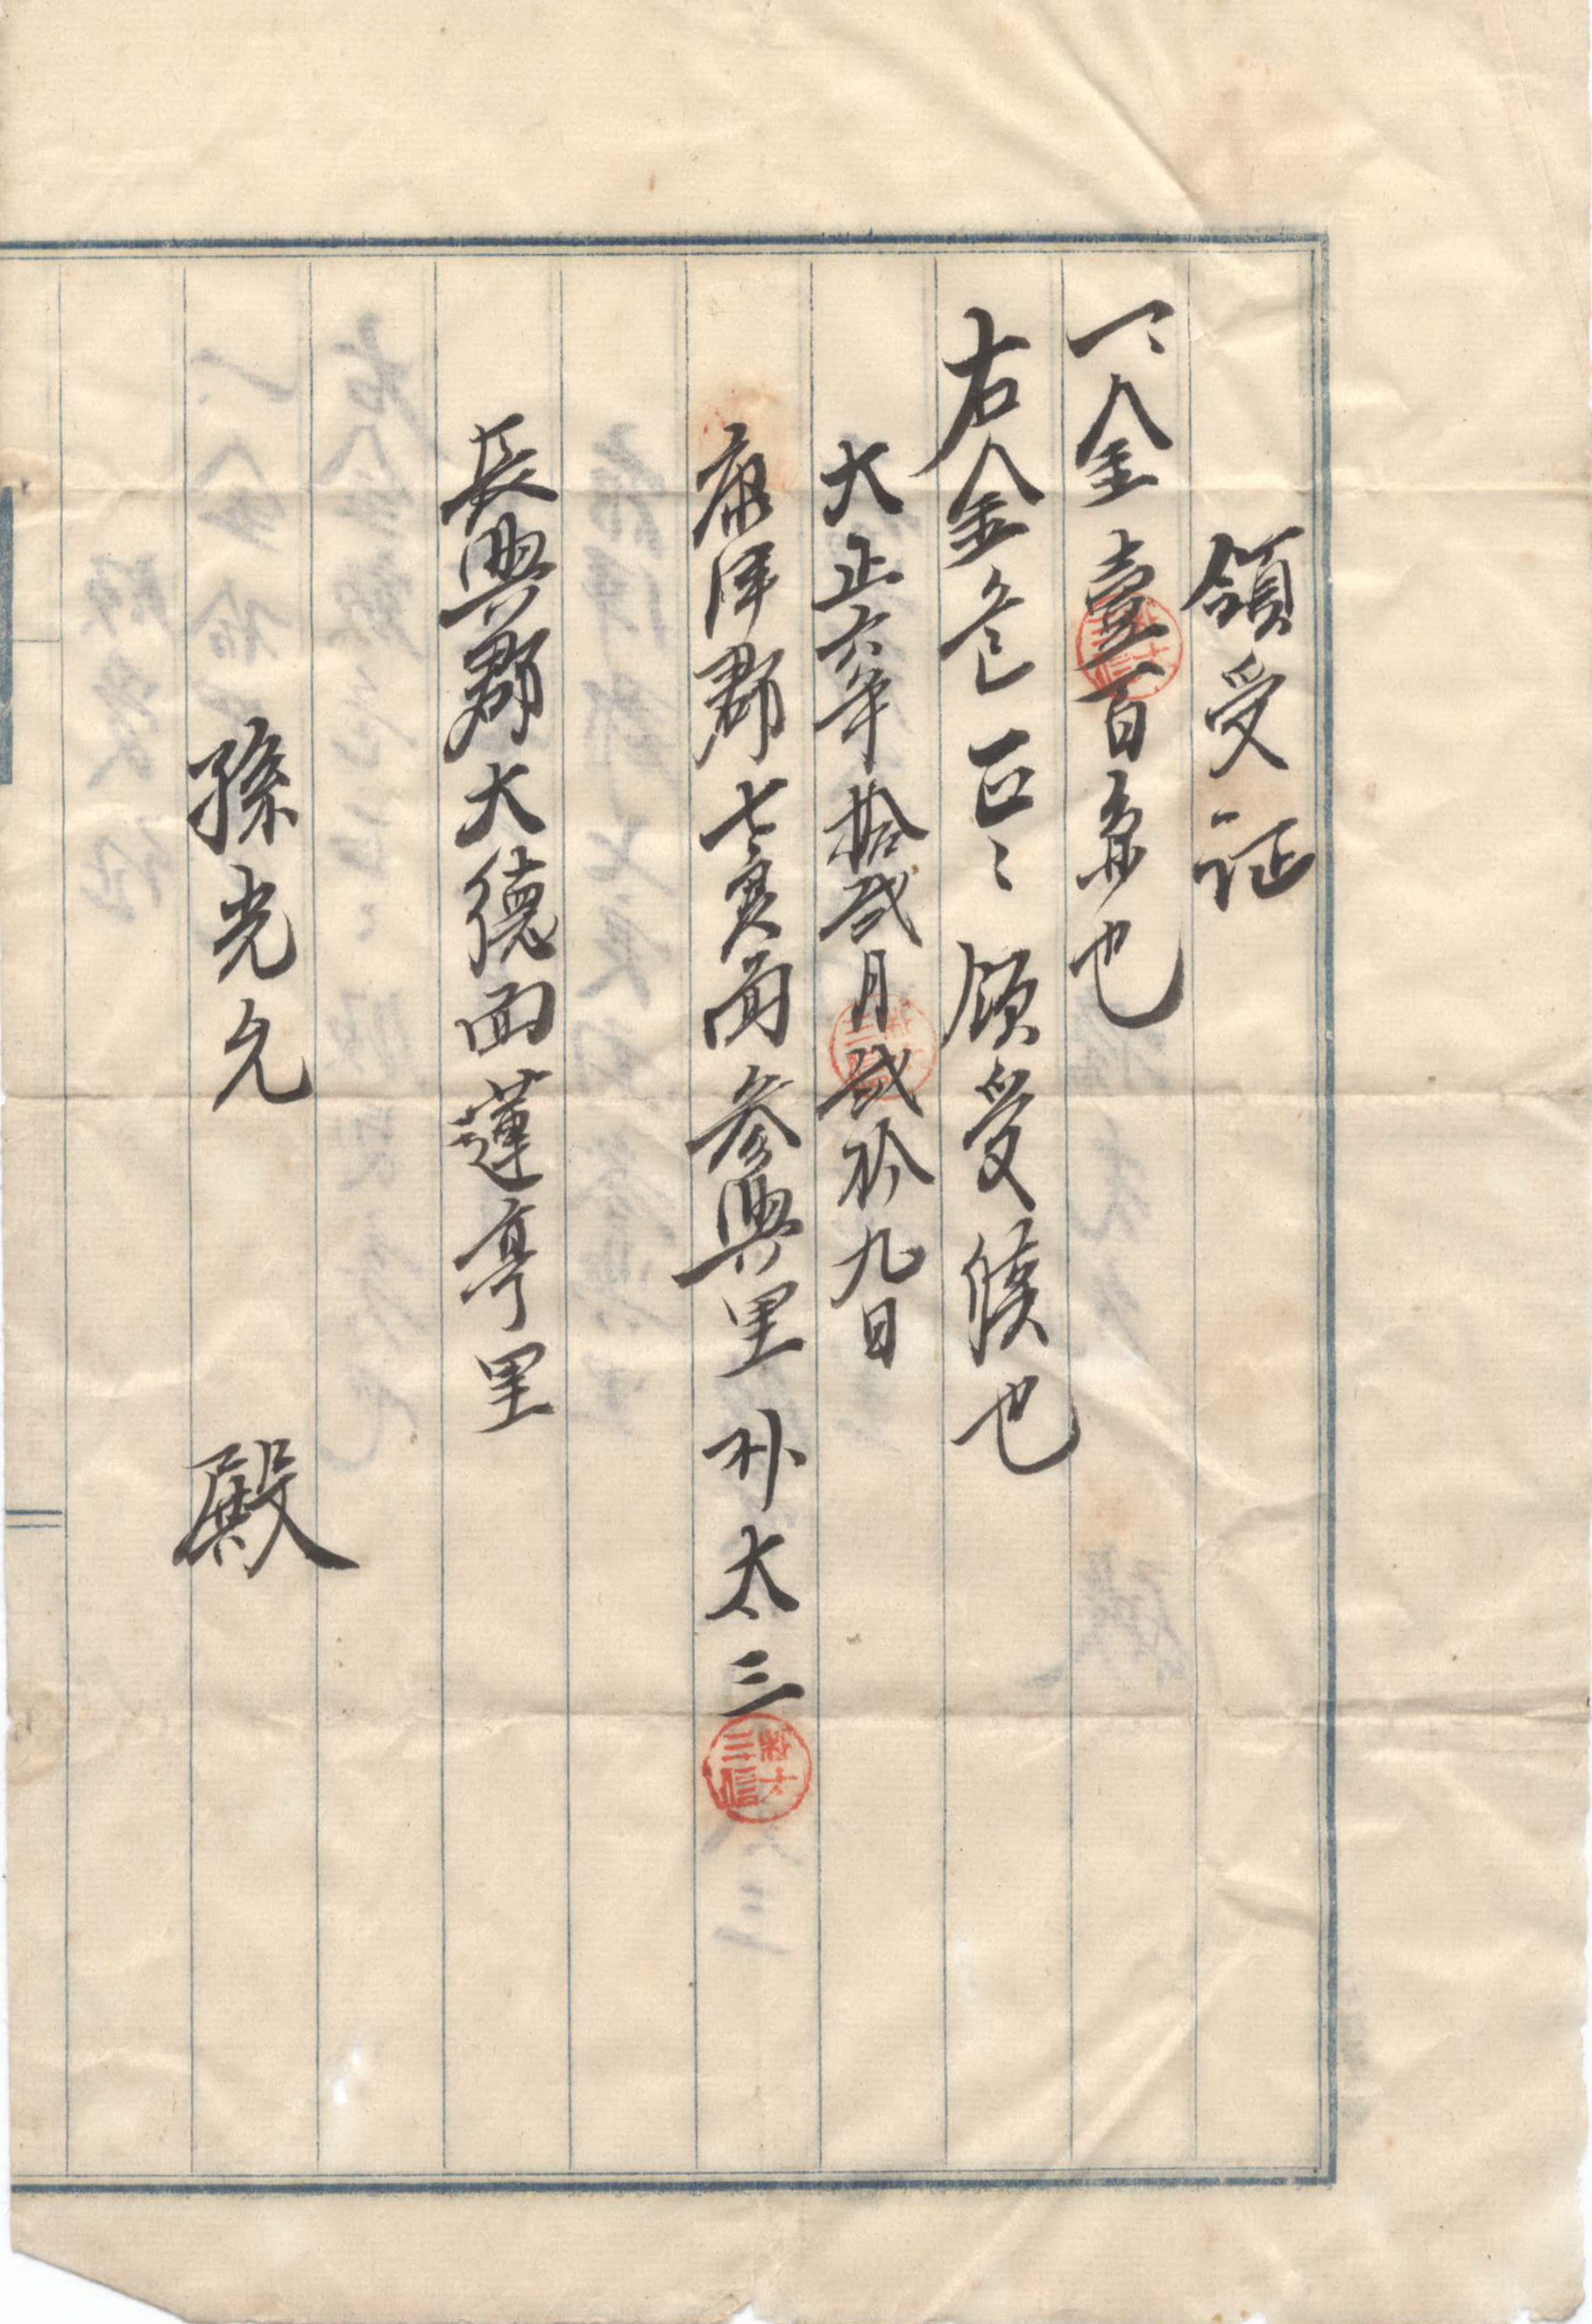 領受証
一、金壹百条也
右金 正 領受候也
大正六年拾貳月貳拾九日
康津郡七寳面參興里 朴太三
長興郡大德面蓮亭里
孫光允 殿